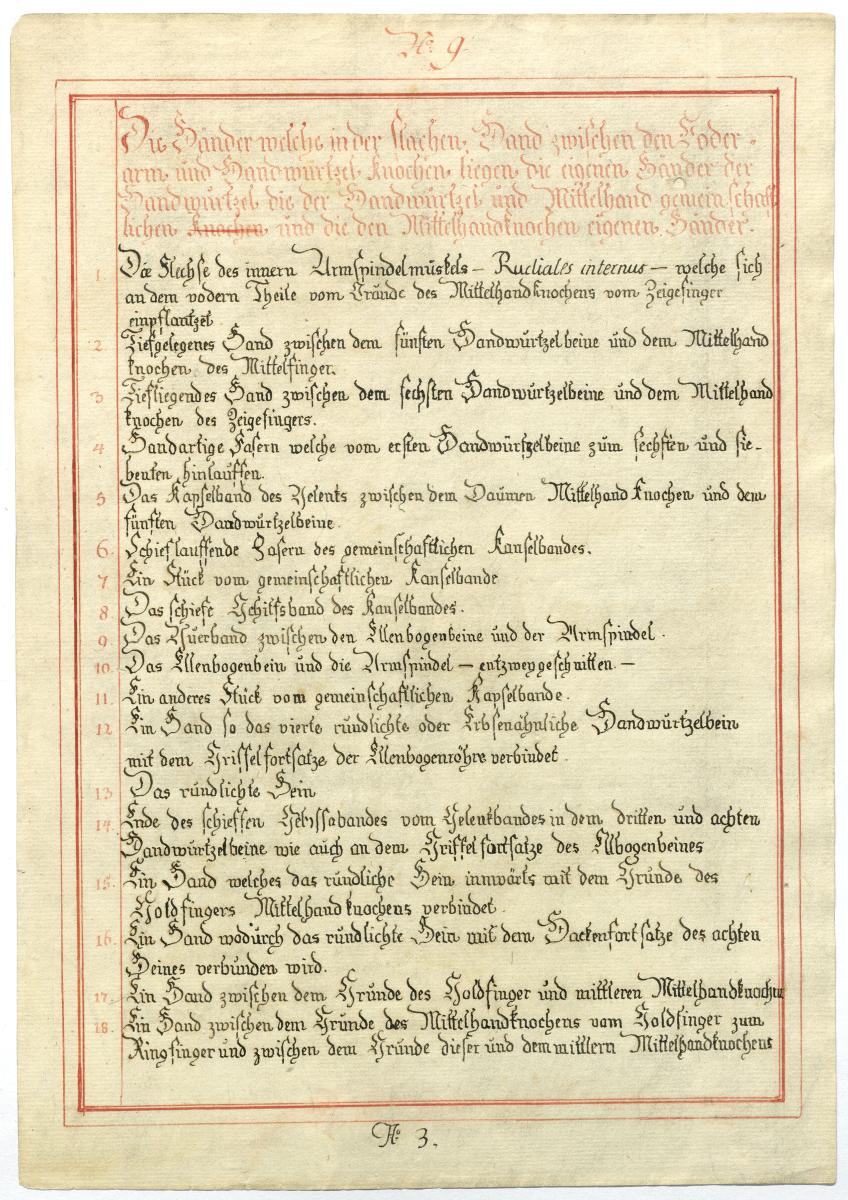 No. 9
Die Bänder welche in der flachen Hand zwischen den Voder-
arm und Handwürtzel Knochen liegen die eigenen Bänder der
Handwürtzel die der Handwürtzel und Mittelhand gemeinschaft
lichen Knochen und die den Mittelhandknochen eigenen Bänder.
1. Die Flechse des innern Armspindelmuskels – Radiales internus – welche sich
an dem vodern Theile vom Gründe des Mittelhandknochens vom Zeigefinger
einpflantzet
2 Tiefgelegenes Band zwischen dem fünften Handwürtzelbeine und dem Mittelhand
knochen des Mittelfinger.
3 Tiefliegendes Band zwischen dem sechsten Handwürtzelbeine und dem Mittelhand
knochen des Zeigefingers.
4 Bandartige Fasern welche vom ersten Handwürtzelbeine zum sechsten und sie-
benten hinlauffen.
5 Das Kapselband des Gelents zwischen dem Daumen Mittelhand Knochen und dem
fünften Handwürtzelbeine.
6. Schieflauffende Fasern des gemeinschaftlichen Kanselbandes.
7 Ein Stück vom gemeinschaftlichen Kanselbande
8 Das schiefe Hhilfsband des Kanselbandes.
9 Das Querband zwischen den Ellenbogenbeine und der Armspindel.
10. Das Ellenbogenbein und die Armspindel – entzwey geschnitten. –
11. Ein anderes Stück vom gemeinschaftlichen Kapselbande.
12 Ein Band so das vierte rundlichte oder Erbsenähnliche Handwürtzelbein
mit dem Griffelfortsatze der Ellenbogenröhre verbindet.
13 Das rundlichte Bein
14. Ende des schieffen vom Gelentbandes in dem dritten und achten
Handwürtzelbeine wie auch an dem Griffelfortsatze des Ellbogenbeines
15. Ein Band welches das rundliche Bein innwärts mit dem Gründe des
Goldfingers Mittelhandknochens verbindet.
16. Ein Band wodurch das rundlichte Bein mit dem Hackenfortsatze des achten
Beines verbunden wird.
17. Ein Band zwischen dem Gründe des Goldfinger und mittleren Mittelhandknochen
18. Ein Band zwischen dem Gründe des Mittelhandknochens vom Goldfinger zum
Ringfinger und zwischen dem Gründe dieser und dem mittlern Mittelhandknochens
No. 3.